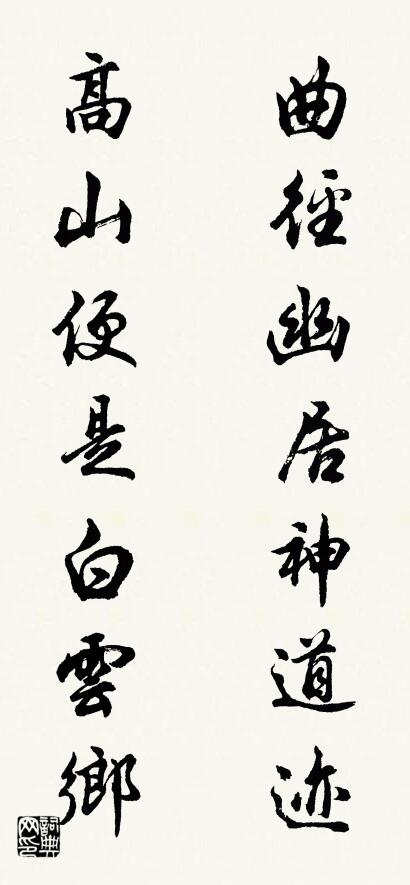 曲徑幽居神道迹
高山便是白雲鄉
詞典网印